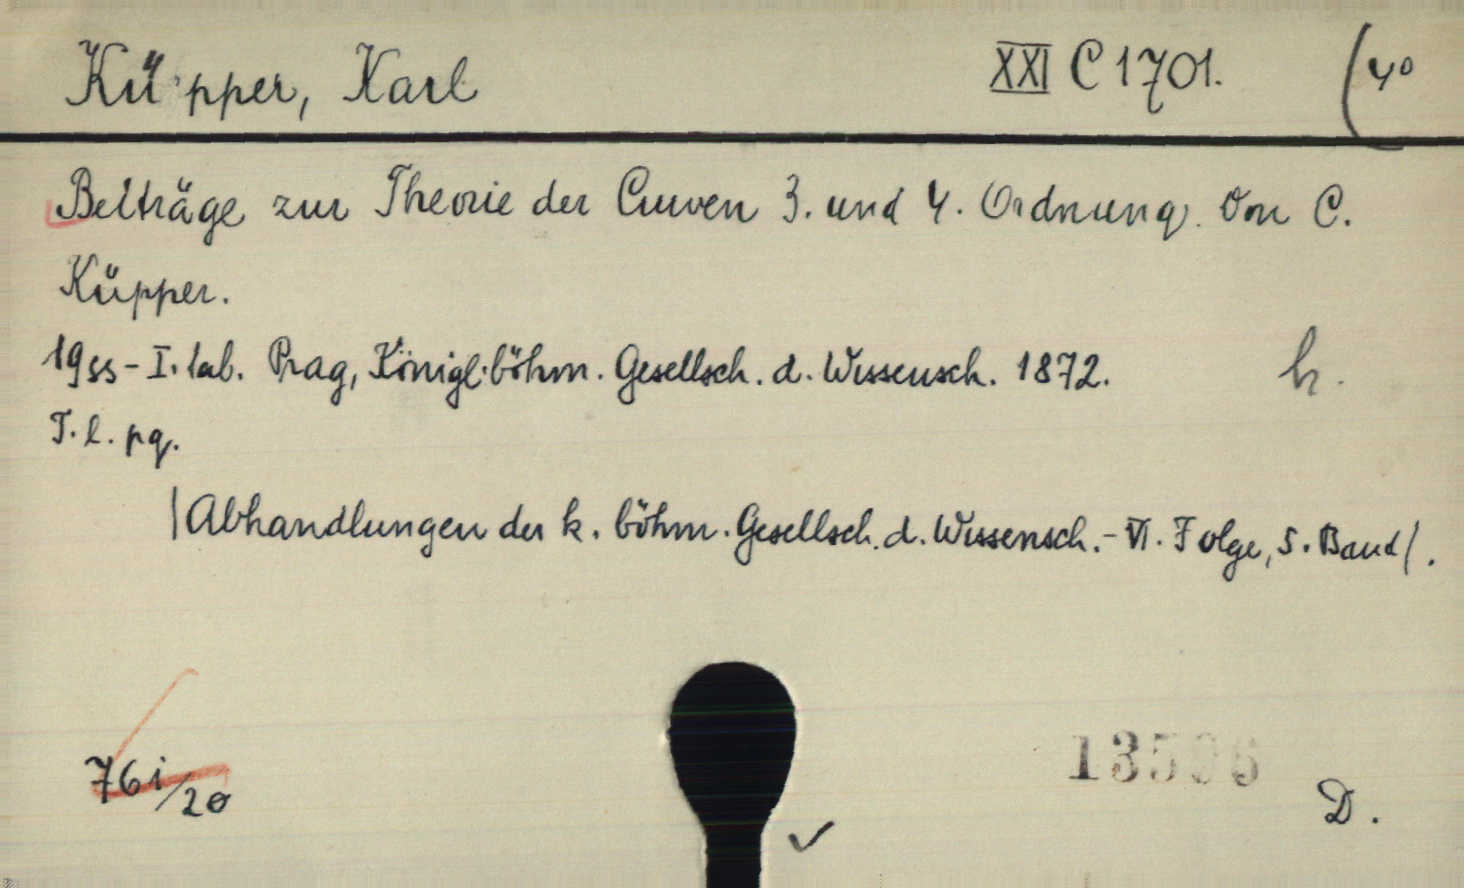 Küpper, Karl XXI C 1701. (4°
Beiträge zur Theorie der Curven 3. und 4. Ordnung. Von C.
Küpper.
19 ss - I. tab. Prag, Königl. böhm. Gesellsch. d. Wissensch. 1872. h.
T. l. pg.
/Abhandlungen der k. böhm. Gesellsch. d. Wissensch. - VI. Folge, 5. Band/.
76 i/20
D.